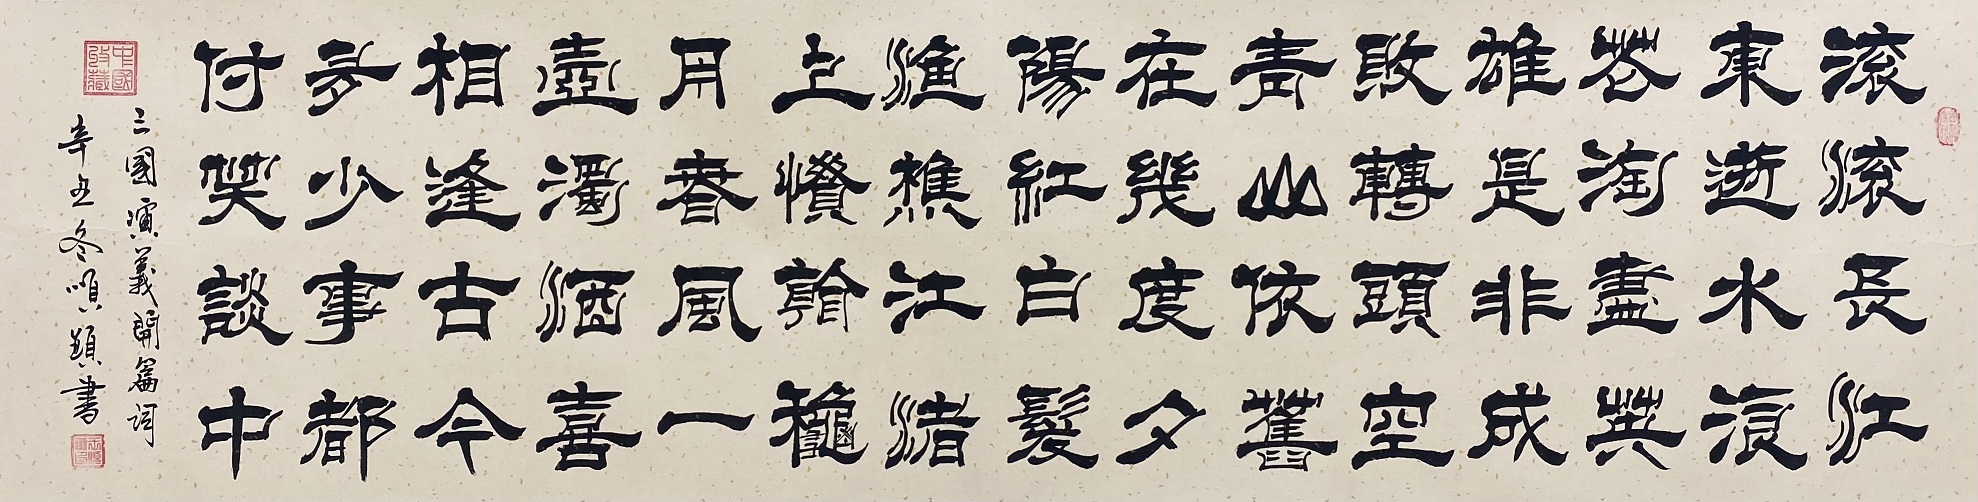 滚滚長江
東逝水浪
花淘盡英
雄是非成
敗轉頭空
青山依舊
在幾度夕
陽紅白髮
漁樵江渚
上慣看龝
月春風一
壺濁酒喜
相逢古今
多少事都
付笑談中
三國演義開篇词
辛丑冬順書
中國收藏